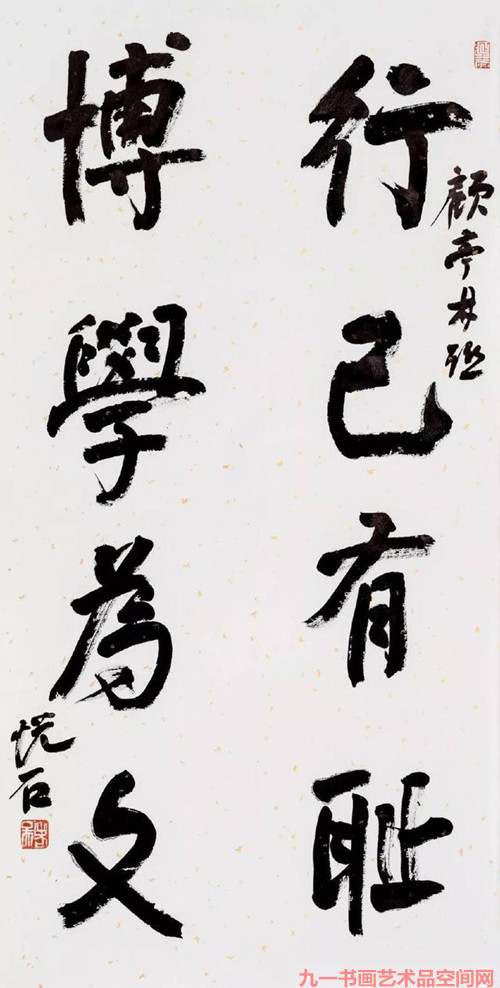 顧亭林語
行己有耻
博學為文
悦石
九一书画艺术品空间网